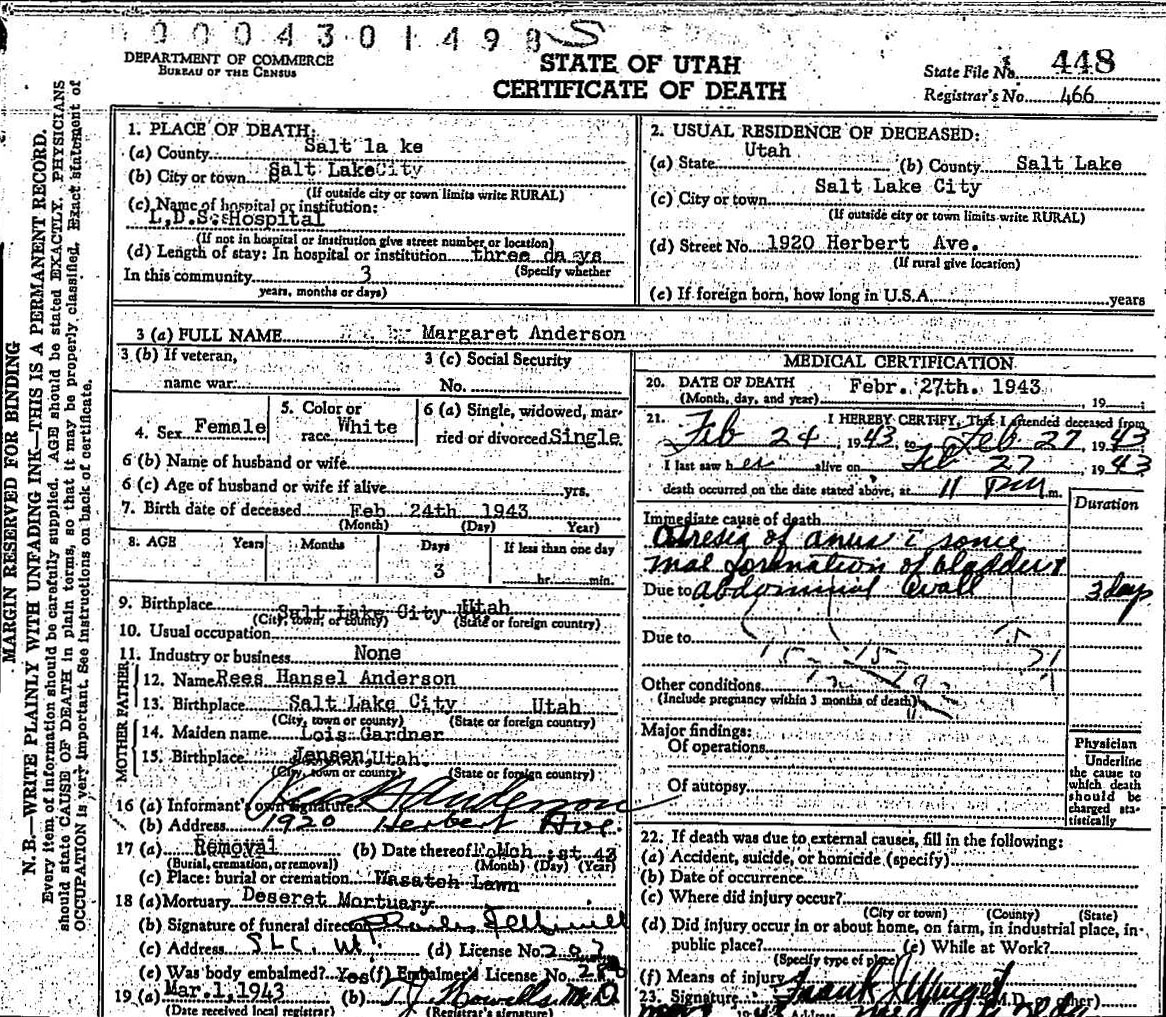 0004301498 S
DEPARTMENT OF COMMERCE
BUREAU OF THE CENSUS
STATE OF UTAH
CERTIFICATE OF DEATH
State File No. 448
Registrar's No. 466
MARGIN RESERVED FOR BINDING
N. B.—WRITE PLAINLY WITH UNFADING INK—THIS IS A PERMANENT RECORD.
Every item of information should be carefully supplied. AGE should be stated EXACTLY. PHYSICIANS
should state CAUSE OF DEATH in plain terms, so that it may be properly classified. Exact statement of
OCCUPATION is very important. See instructions on back of certificate.
1. PLACE OF DEATH:
(a) County Salt la ke
(b) City or town Salt Lake City
(If outside city or town limits write RURAL)
(c) Name of hospital or institution:
L.D.S. Hospital
(If not in hospital or institution give street number or location)
(d) Length of stay: In hospital or institution three da ys
(Specify whether
In this community 3
years, months or days)
2. USUAL RESIDENCE OF DECEASED:
(a) State Utah (b) County Salt Lake
(c) City or town Salt Lake City
(If outside city or town limits write RURAL)
(d) Street No. 1920 Herbert Ave.
(If rural give location)
(e) If foreign born, how long in U.S.A. years
3 (a) FULL NAME Margaret Anderson
3 (b) If veteran,
name war
3 (c) Social Security
No.
4. Sex Female
5. Color or
race White
6 (a) Single, widowed, mar-
ried or divorced Single
6 (b) Name of husband or wife
6 (c) Age of husband or wife if alive yrs.
7. Birth date of deceased Feb 24th 1943
(Month) (Day) Year)
8. AGE Years Months Days If less than one day
3 hr. min.
9. Birthplace Salt Lake City Utah
(City, town, or county) (State or foreign country)
10. Usual occupation
11. Industry or business None
FATHER
12. Name Rees Hansel Anderson
13. Birthplace Salt Lake City Utah
(City, town or county) (State or foreign country)
MOTHER
14. Maiden name Lois Gardner
15. Birthplace Jensen, Utah.
(City, town or county) (State or foreign country)
16 (a) Informant's own signature Anderson
(b) Address 1920 Herbert Ave.
17 (a) Removal (b) Date thereof 43
(Burial, cremation, or removal) (Month) (Day) (Year)
(c) Place: burial or cremation Wasatch Lawn
18 (a) Mortuary Deseret Mortuary
(b) Signature of funeral director
(c) Address S.L.C. Ut. (d) License No.
(e) Was body embalmed? Yes (f) Embalmer's License No.
19 (a) Mar. 1, 1943 (b) M.D.
(Date received local registrar) (Registrar's signature)
MEDICAL CERTIFICATION
20. DATE OF DEATH Febr. 27th. 1943
(Month, day, and year) , 19
21. I HEREBY CERTIFY, That I attended deceased from
Feb 24, 1943 to Feb 27 1943
I last saw her alive on Feb 27, 1943
death occurred on the date stated above, at 11 PM m.
Duration
Immediate cause of death
Atresia of anus c some
mal formation of bladder &
Due to abdominal wall 3 days
Due to
Other conditions
(Include pregnancy within 3 months of death)
Major findings:
Of operations
Of autopsy
Physician
Underline
the cause to
which death
should be
charged sta-
tistically
22. If death was due to external causes, fill in the following:
(a) Accident, suicide, or homicide (specify)
(b) Date of occurrence
(c) Where did injury occur?
(City or town) (County) (State)
(d) Did injury occur in or about home, on farm, in industrial place, in
public place? (e) While at Work?
(Specify type of place)
(f) Means of injury
23. Signature Frank (M.D. or other)
Address